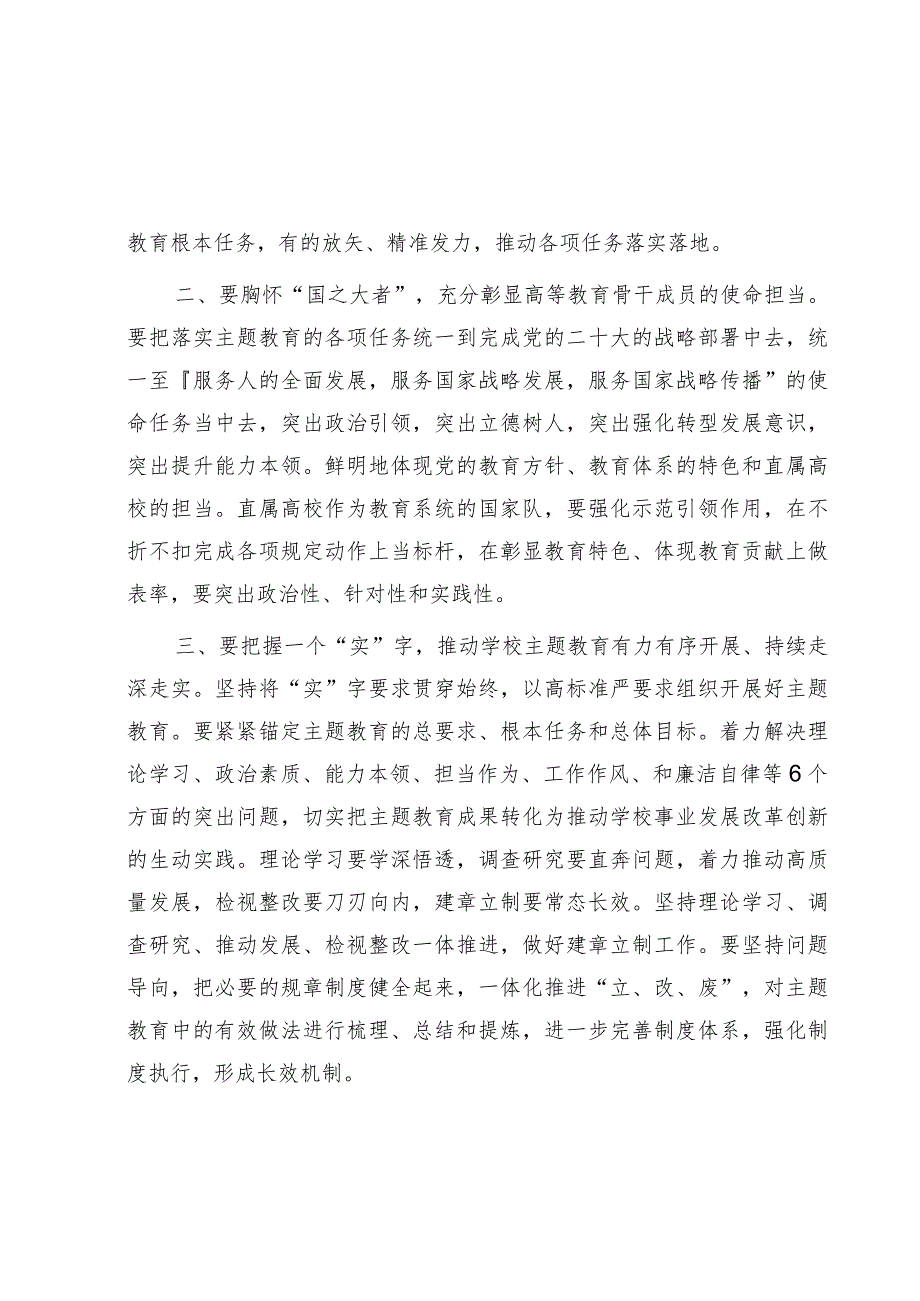 教育根本任务，有的放矢、精准发力，推动各项任务落实落地。
二、要胸怀“国之大者”，充分彰显高等教育骨干成员的使命担当。
要把落实主题教育的各项任务统一到完成党的二十大的战略部署中去，统
一至『服务人的全面发展，服务国家战略发展，服务国家战略传播”的使
命任务当中去，突出政治引领，突出立德树人，突出强化转型发展意识，
突出提升能力本领。鲜明地体现党的教育方针、教育体系的特色和直属高
校的担当。直属高校作为教育系统的国家队，要强化示范引领作用，在不
折不扣完成各项规定动作上当标杆，在彰显教育特色、体现教育贡献上做
表率，要突出政治性、针对性和实践性。
三、要把握一个“实”字，推动学校主题教育有力有序开展、持续走
深走实。坚持将“实”字要求贯穿始终，以高标准严要求组织开展好主题
教育。要紧紧锚定主题教育的总要求、根本任务和总体目标。着力解决理
论学习、政治素质、能力本领、担当作为、工作作风、和廉洁自律等6个
方面的突出问题，切实把主题教育成果转化为推动学校事业发展改革创新
的生动实践。理论学习要学深悟透，调查研究要直奔问题，着力推动高质
量发展，检视整改要刀刃向内，建章立制要常态长效。坚持理论学习、调
查研究、推动发展、检视整改一体推进，做好建章立制工作。要坚持问题
导向，把必要的规章制度健全起来，一体化推进“立、改、废”，对主题
教育中的有效做法进行梳理、总结和提炼，进一步完善制度体系，强化制
度执行，形成长效机制。